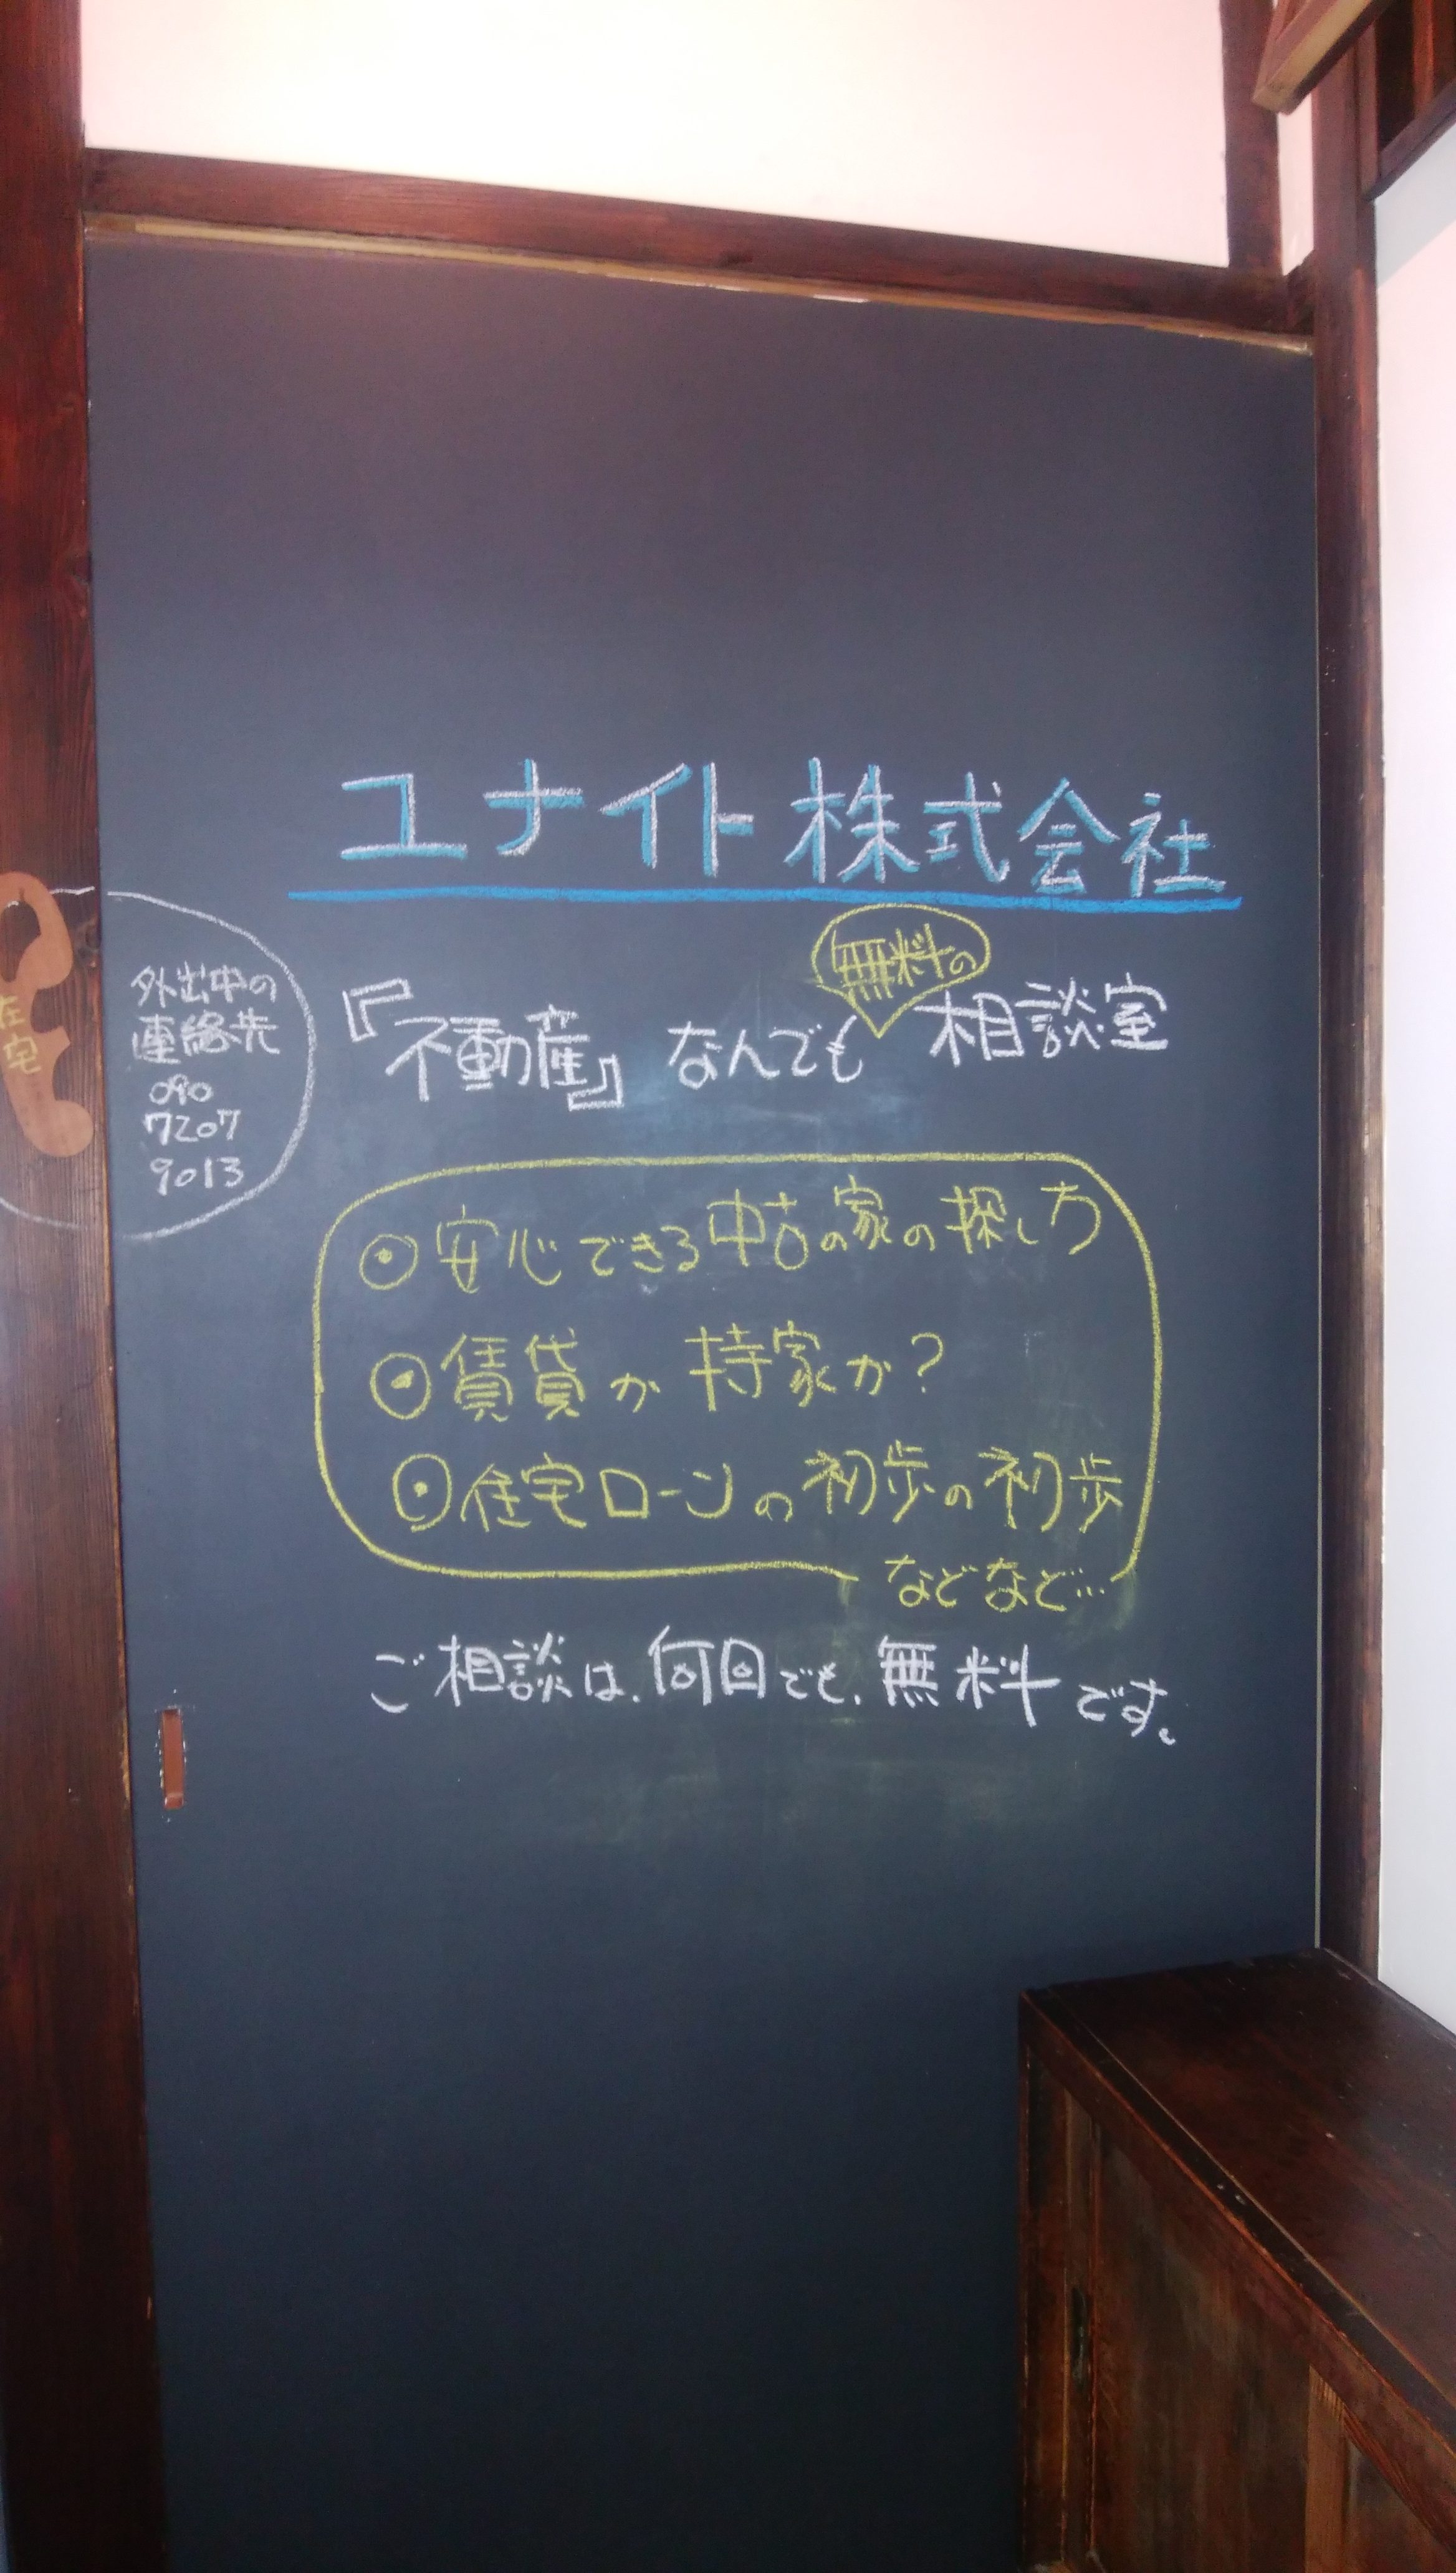 ユナイト株式会社
無料の
『不動産』なんでも相談室
外出中の
連絡先
090
7207
9013
在宅
⦿安心できる中古の家の探し方
⦿賃貸か持家か?
⦿住宅ローンの初歩の初歩
などなど…
ご相談は、何回でも、無料です。